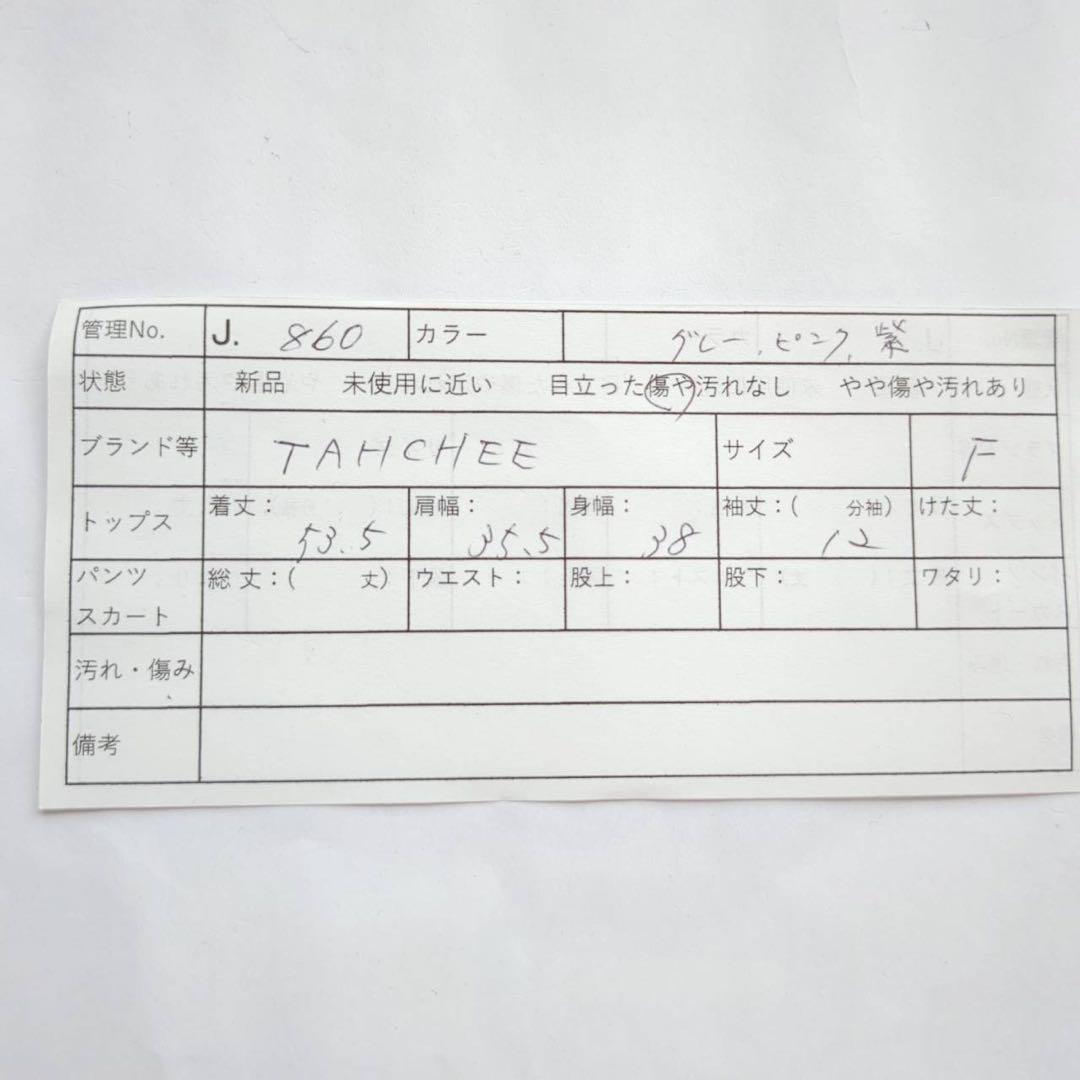 管理No. J. 860 カラー グレー、ピンク、紫
状態 新品 未使用に近い 目立った傷や汚れなし やや傷や汚れあり
ブランド等 TAHCHEE サイズ F
トップス 着丈: 53.5 肩幅: 35.5 身幅: 38 袖丈:( 分袖) 12 けた丈:
パンツ 総丈:( 丈) ウエスト: 股上: 股下: ワタリ:
スカート
汚れ・傷み
備考